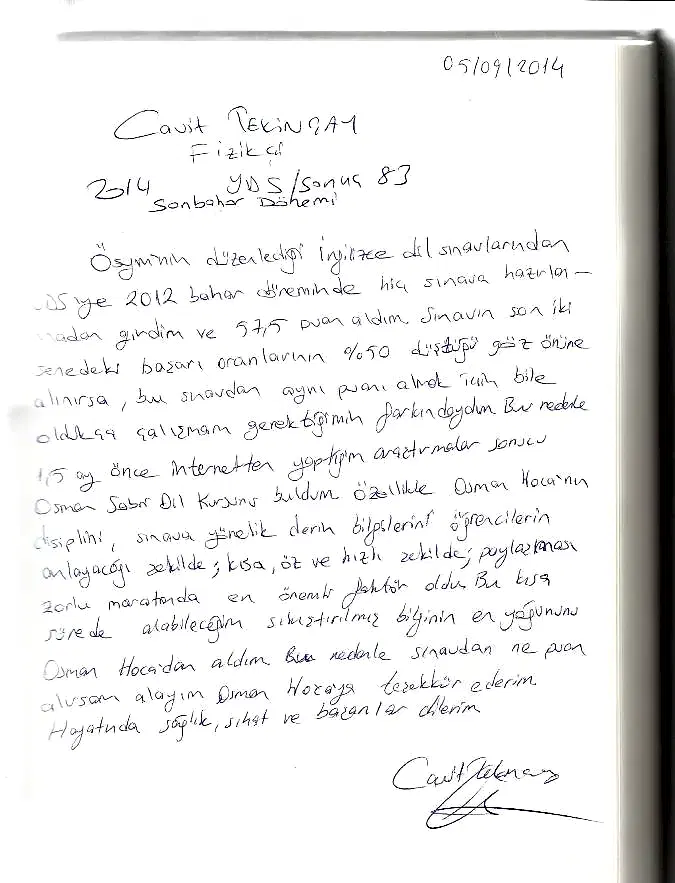 05/09/2014
Cavit TEKİNÇAY
Fizikçi
2014 YDS/Sonuç 83
Sonbahar Dönemi
Ösym'nin düzenlediği İngilizce dil sınavlarından
YDS'ye 2012 bahar döneminde hiç sınava hazırlan-
madan girdim ve 57,5 puan aldım. Sınavın son iki
senedeki başarı oranlarının %50 düştüğü göz önüne
alınırsa, bu sınavdan aynı puanı almak için bile
oldukça çalışmam gerektiğinin farkındaydım. Bu nedenle
1,5 ay önce internetten yaptığım araştırmalar sonucu
Osman Sabır Dil Kursunu buldum özellikle Osman Hoca'nın
disiplini, sınava yönelik derin bilgilerini öğrencilerin
anlayacağı şekilde; kısa, öz ve hızlı şekilde; paylaşması
zorlu maratonda en önemli faktör oldu. Bu kısa
sürede alabileceğim sıkıştırılmış bilginin en yoğununu
Osman Hoca'dan aldım. Bu nedenle sınavdan ne puan
alırsam alayım Osman Hocaya teşekkür ederim
Hayatında sağlık, sıhat ve başarılar dilerim
Cavit